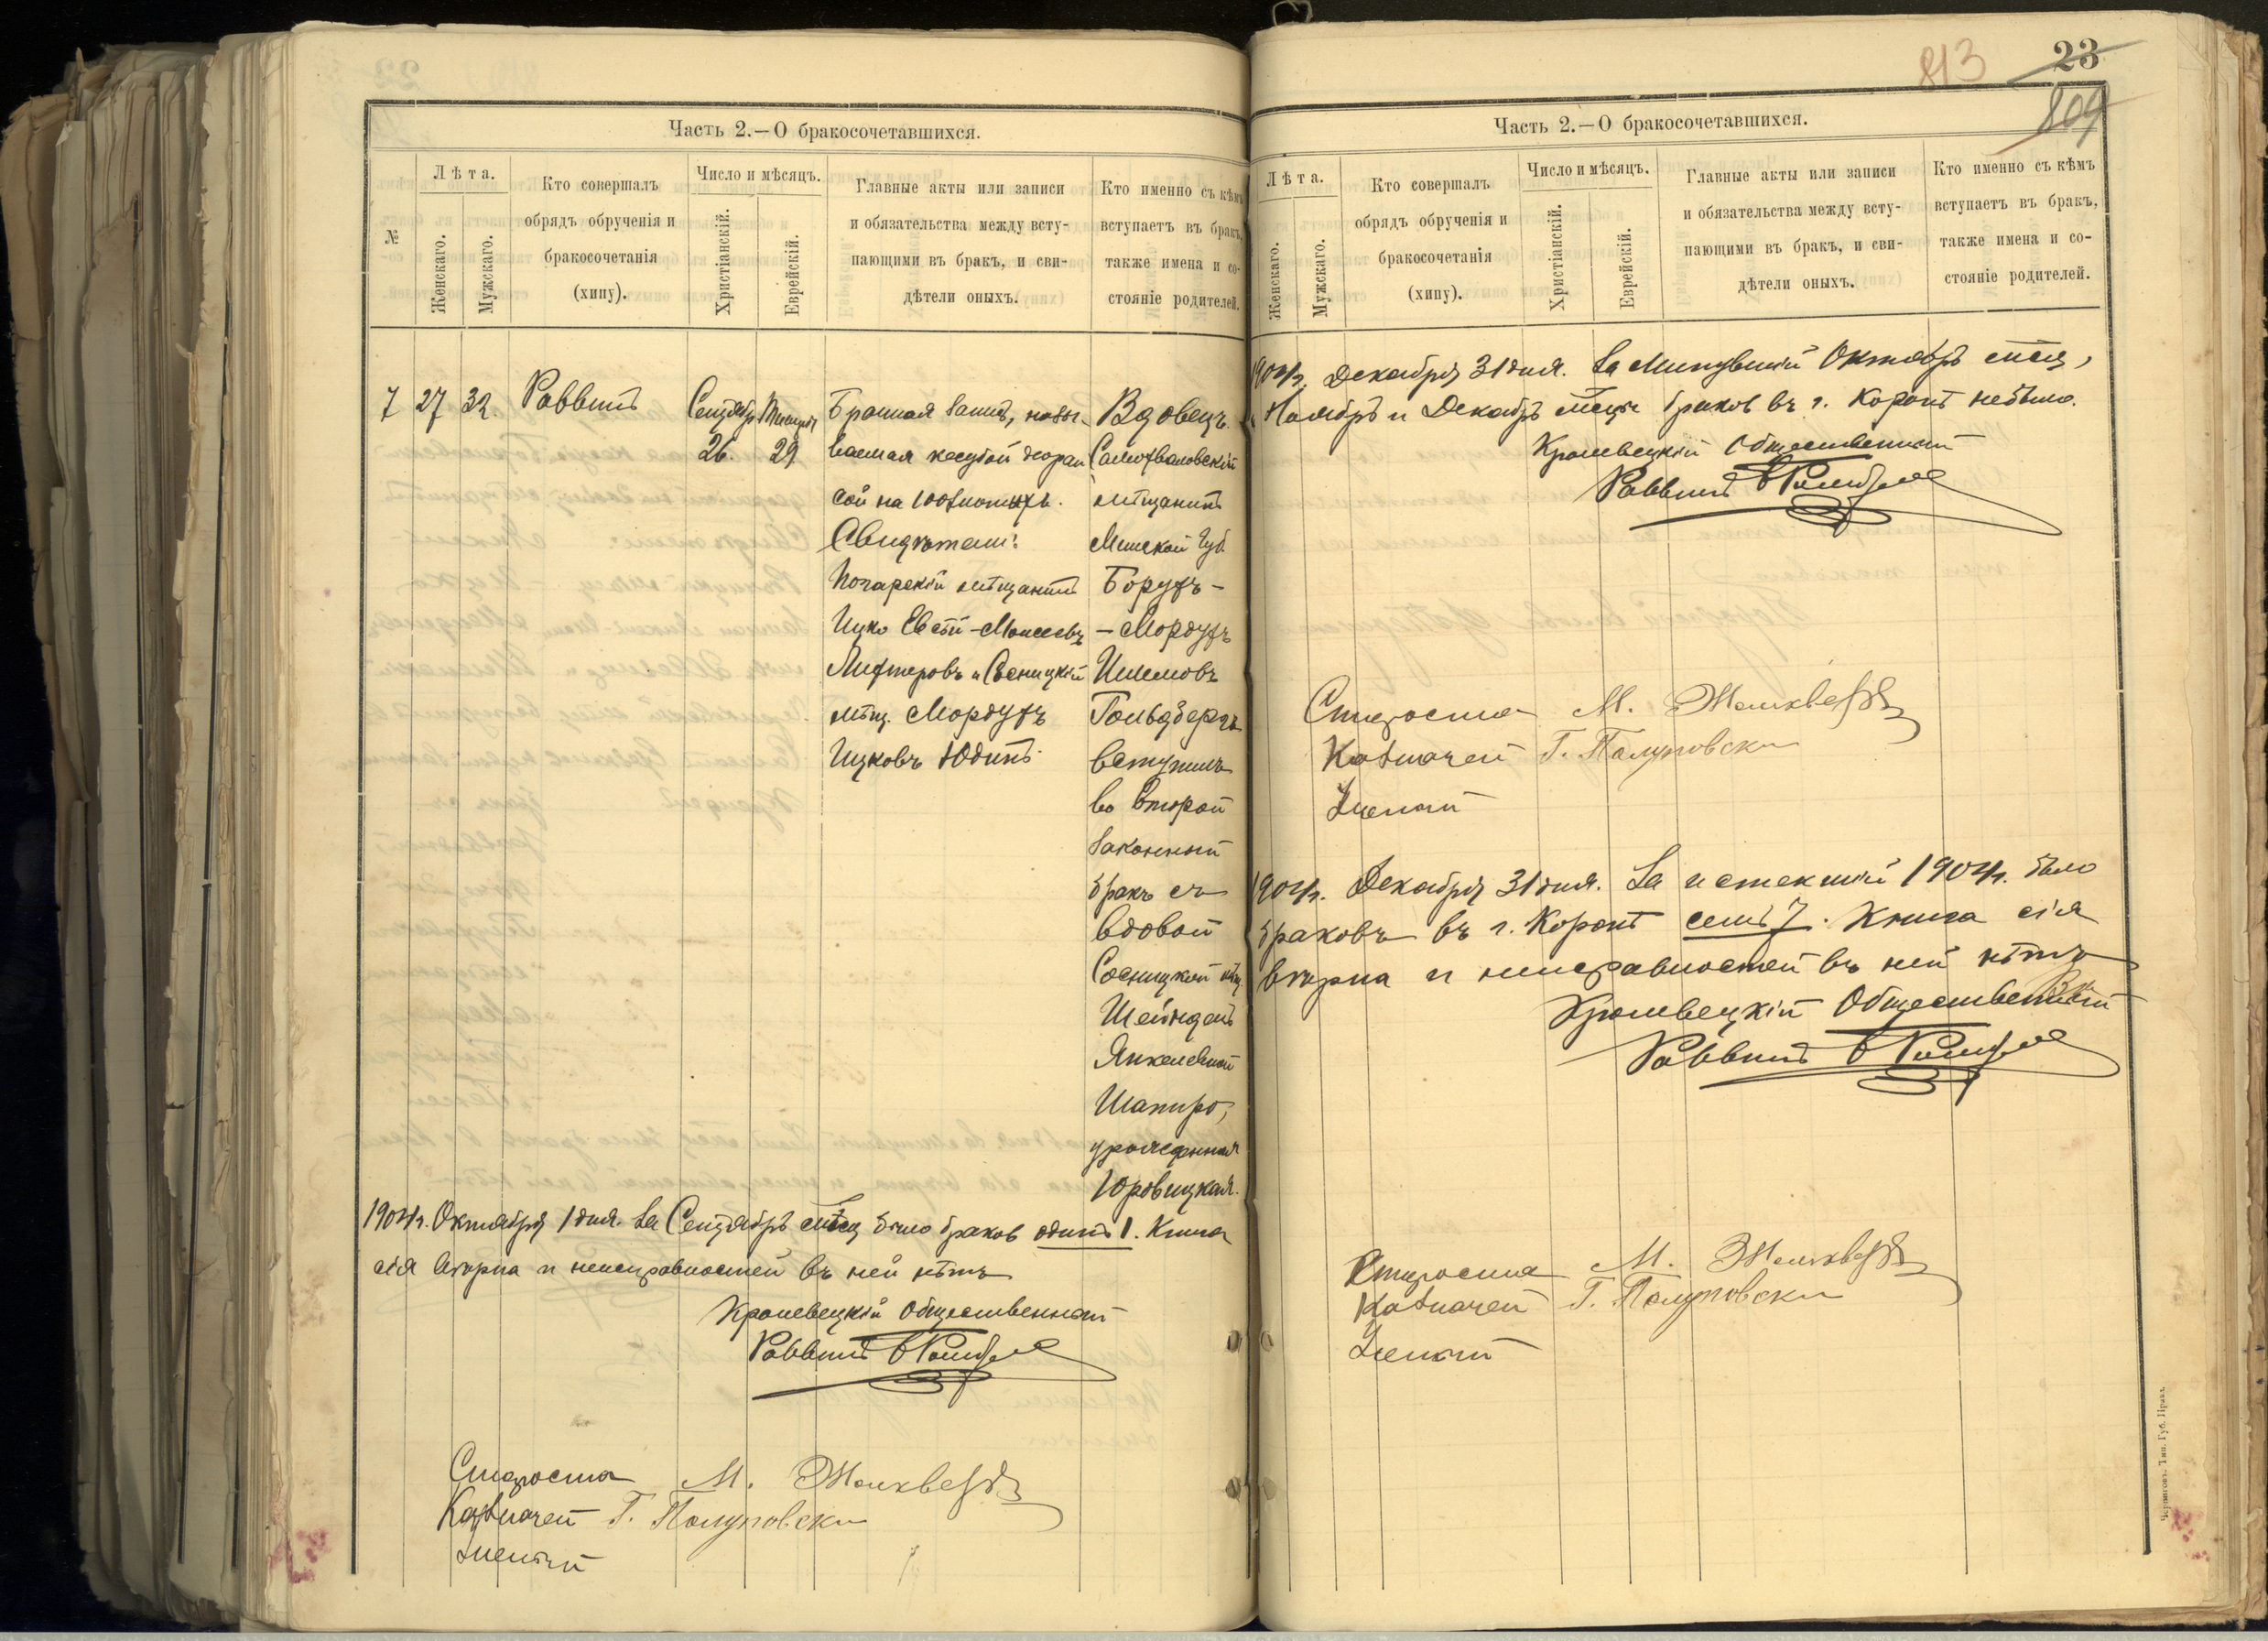 Часть 2.—О бракосочетавшихся.
№
Лѣта.
Женскаго.
Мужскаго.
Кто совершалъ
обрядъ обрученія и
бракосочетанія
(хипу).
Число и мѣсяцъ.
Христіанскій.
Еврейскій.
Главные акты или записи
и обязательства между всту-
пающими въ бракъ, и сви-
дѣтели оныхъ.
Кто именно съ кѣмъ
вступаетъ въ бракъ,
также имена и со-
стояніе родителей.
7
27
32.
Раввинъ
Сентября
26.
Тишрей
29
Брачная запись, назы-
ваемая кесубой деорай
сой на 100 злотыхъ.
Свидѣтели:
Погарскій мѣщанинъ
Ицко Евсѣй-Моисеевъ
Лифтеровъ и Сосницкій
мѣщ. Мордухъ
Ицковъ Юдинъ.
Вдовецъ.
Самохваловскій
мѣщанинъ
Минской Губ.
Борухъ-
-Мордухъ
Шлемовъ
Гольдбергъ
вступилъ
во второй
законный
бракъ съ
вдовой
Сосницкой мѣщ.
Шейндель
Янкелевной
Шапиро,
урожденная
Юровицкая.
1904г. Октября 1 дня. За Сентябрь мѣсяц было браков одинъ 1. Книга
сія вѣрна и неисправностей въ ней нѣтъ
Кролевецкій Общественный
Раввинъ
Староста М.
Казначей Г.
Ученый
813
23
809
Часть 2.—О бракосочетавшихся.
Лѣта.
Женскаго.
Мужскаго.
Кто совершалъ
обрядъ обрученія и
бракосочетанія
(хипу).
Число и мѣсяцъ.
Христіанскій.
Еврейскій.
Главные акты или записи
и обязательства между всту-
пающими въ бракъ, и сви-
дѣтели оныхъ.
Кто именно съ кѣмъ
вступаетъ въ бракъ,
также имена и со-
стояніе родителей.
1904г. Декабря 31 дня. За минувшій Октябрь мѣсяц,
Ноябрь и Декабрь мѣсяцы браков въ г. Коропѣ небыло.
Кролевецкій Общественный
Раввинъ
Староста М.
Казначей Г.
Ученый
1904г. Декабря 31 дня. За истекшій 1904г. было
браковъ въ г. Коропѣ семь 7. Книга сія
вѣрна и неисправностей въ ней нѣтъ
Кролевецкій Общественный
Раввинъ
Староста М.
Казначей Г.
Ученый
Черниговъ. Тип. Губ. Правл.